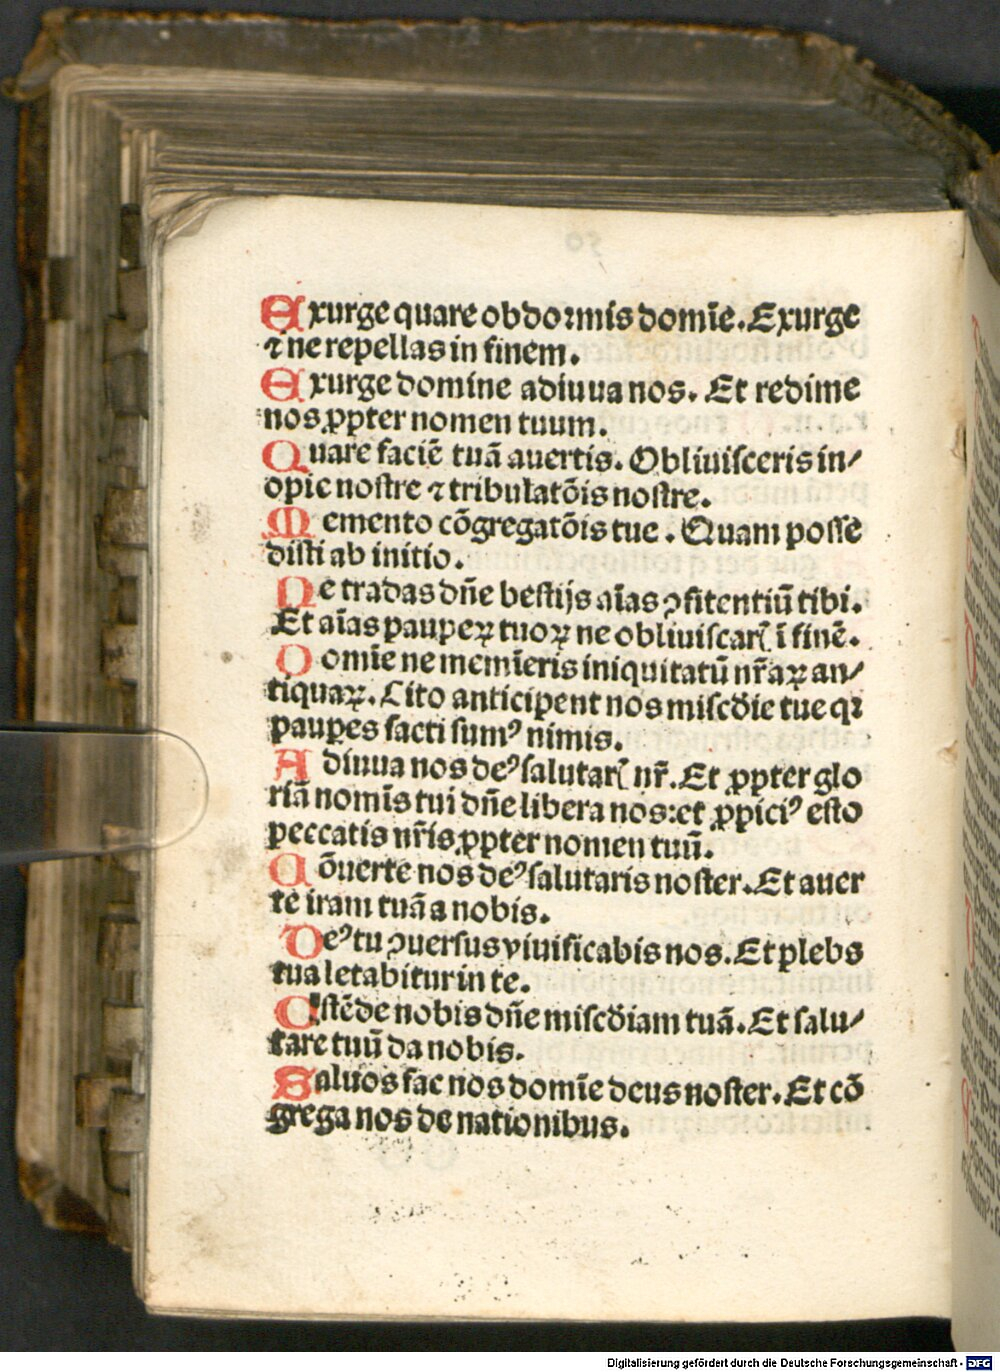 Exurge quare obdormis domīe. Exurge
⁊ ne repellas in finem.
Exurge domine adiuua nos. Et redime
nos ꝓpter nomen tuum.
Quare faciē tuā auertis. Obliuisceris in/
opie nostre ⁊ tribulatōis nostre.
Memento cōgregatōis tue. Quam posse
disti ab initio.
Ne tradas dn̄e bestijs aīas ꝯfitentiū tibi.
Et aīas pauperꝝ tuoꝝ ne obliuiscarꝭ ī finē.
Domīe ne memīeris iniquitatū nr̄aꝝ an/
tiquaꝝ. Cito anticipent nos miscd̄ie tue qꝛ
pauꝑes facti sumꝰ nimis.
Adiuua nos deꝰ salutarꝭ nr̄. Et ꝓpter glo
riā nomīs tui dn̄e libera nos: et ꝓpiciꝰ esto
peccatis nr̄is ꝓpter nomen tuū.
Cōuerte nos deꝰ salutaris noster. Et auer
te iram tuā a nobis.
Deꝰ tu ꝯuersus viuificabis nos. Et plebs
tua letabitur in te.
Ostēde nobis dn̄e miscd̄iam tuā. Et salu/
tare tuū da nobis.
Saluos fac nos domīe deus noster. Et cō
grega nos de nationibus.
Digitalisierung gefördert durch die Deutsche Forschungsgemeinschaft - DFG